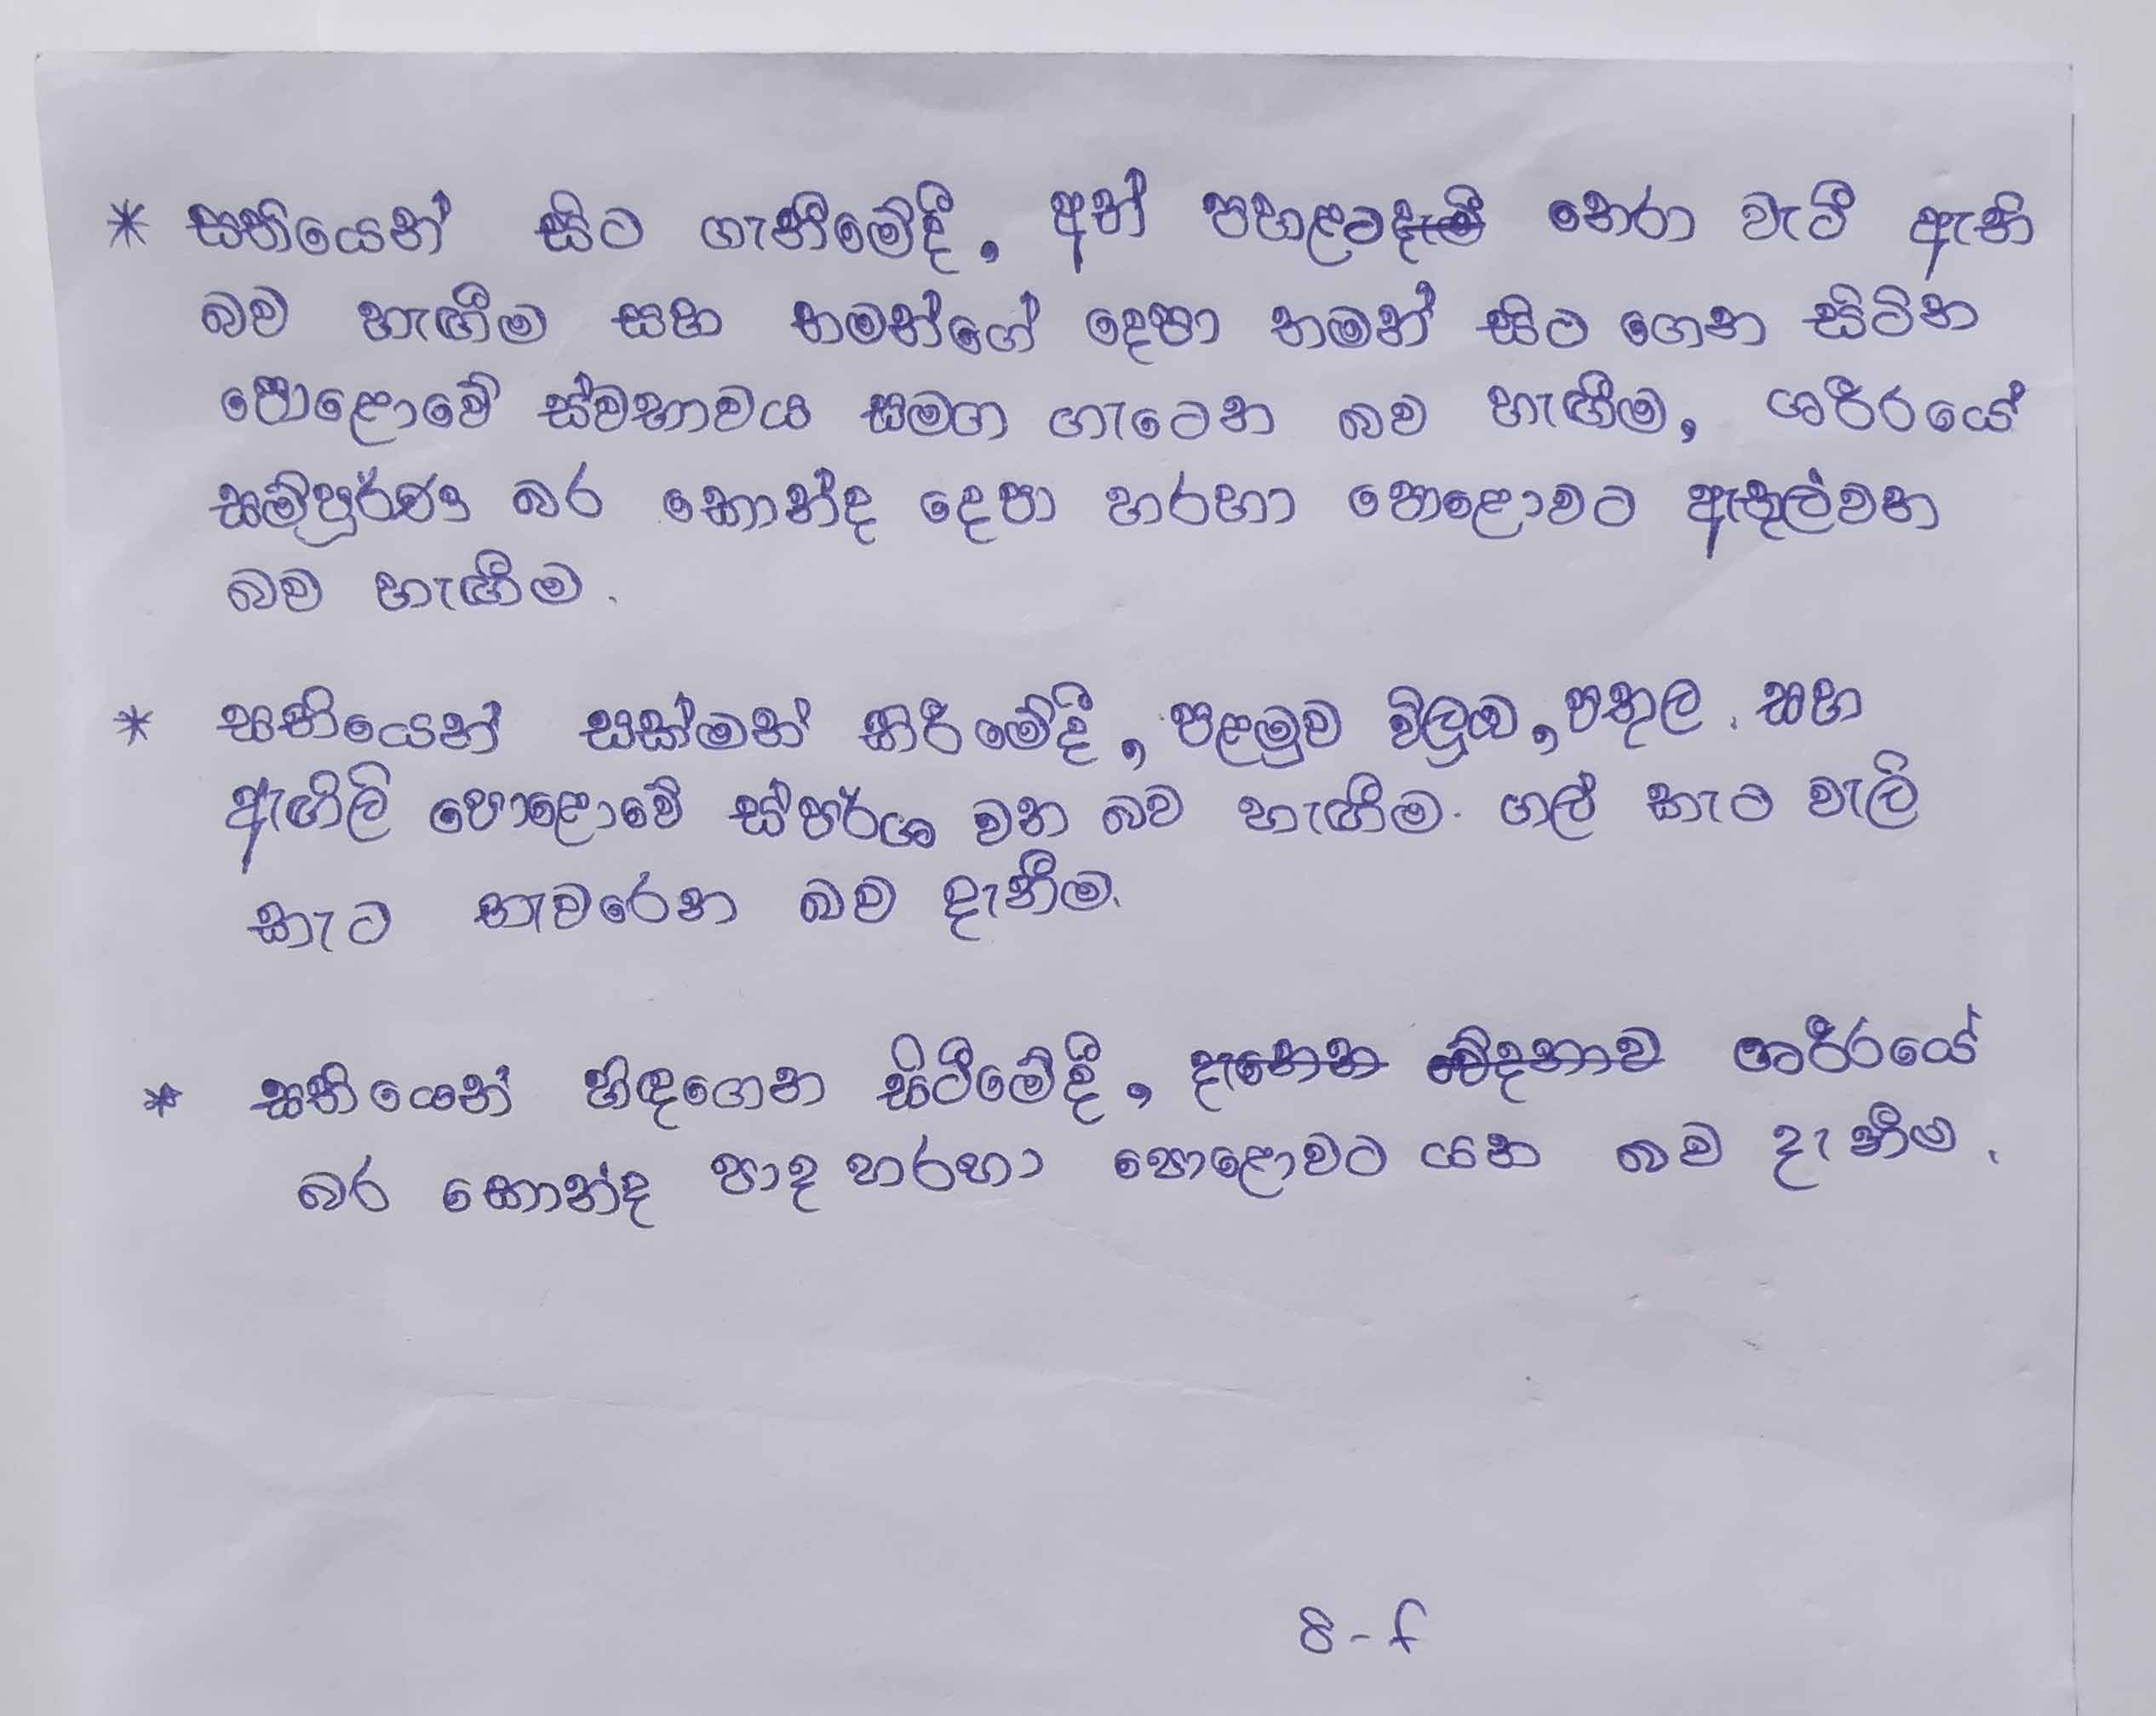 * සතියෙන් සිට ගැනීමේදී, අත් පහළට නෙරා වැටී ඇති
බව හැඟීම සහ තමන්ගේ දෙපා තමන් සිට ගෙන සිටින
පොළොවේ ස්වභාවය සමග ගැටෙන බව හැඟීම, ශරීරයේ
සම්පූර්ණ බර කොන්ද දෙපා හරහා පොළොවට ඇතුල්වන
බව හැඟීම.
* සතියෙන් සක්මන් කිරීමේදී, පළමුව විලුඹ, පතුල, සහ
ඇඟිලි පොළොවේ ස්පර්ශ වන බව හැඟීම. ගල් කැට වැලි
කැට තැවරෙන බව දැනීම.
* සතියෙන් හිඳගෙන සිටීමේදී, දැනෙන වේදනාව ශරීරයේ
බර කොන්ද පාද හරහා පොළොවට යන බව දැනීම.
8-f